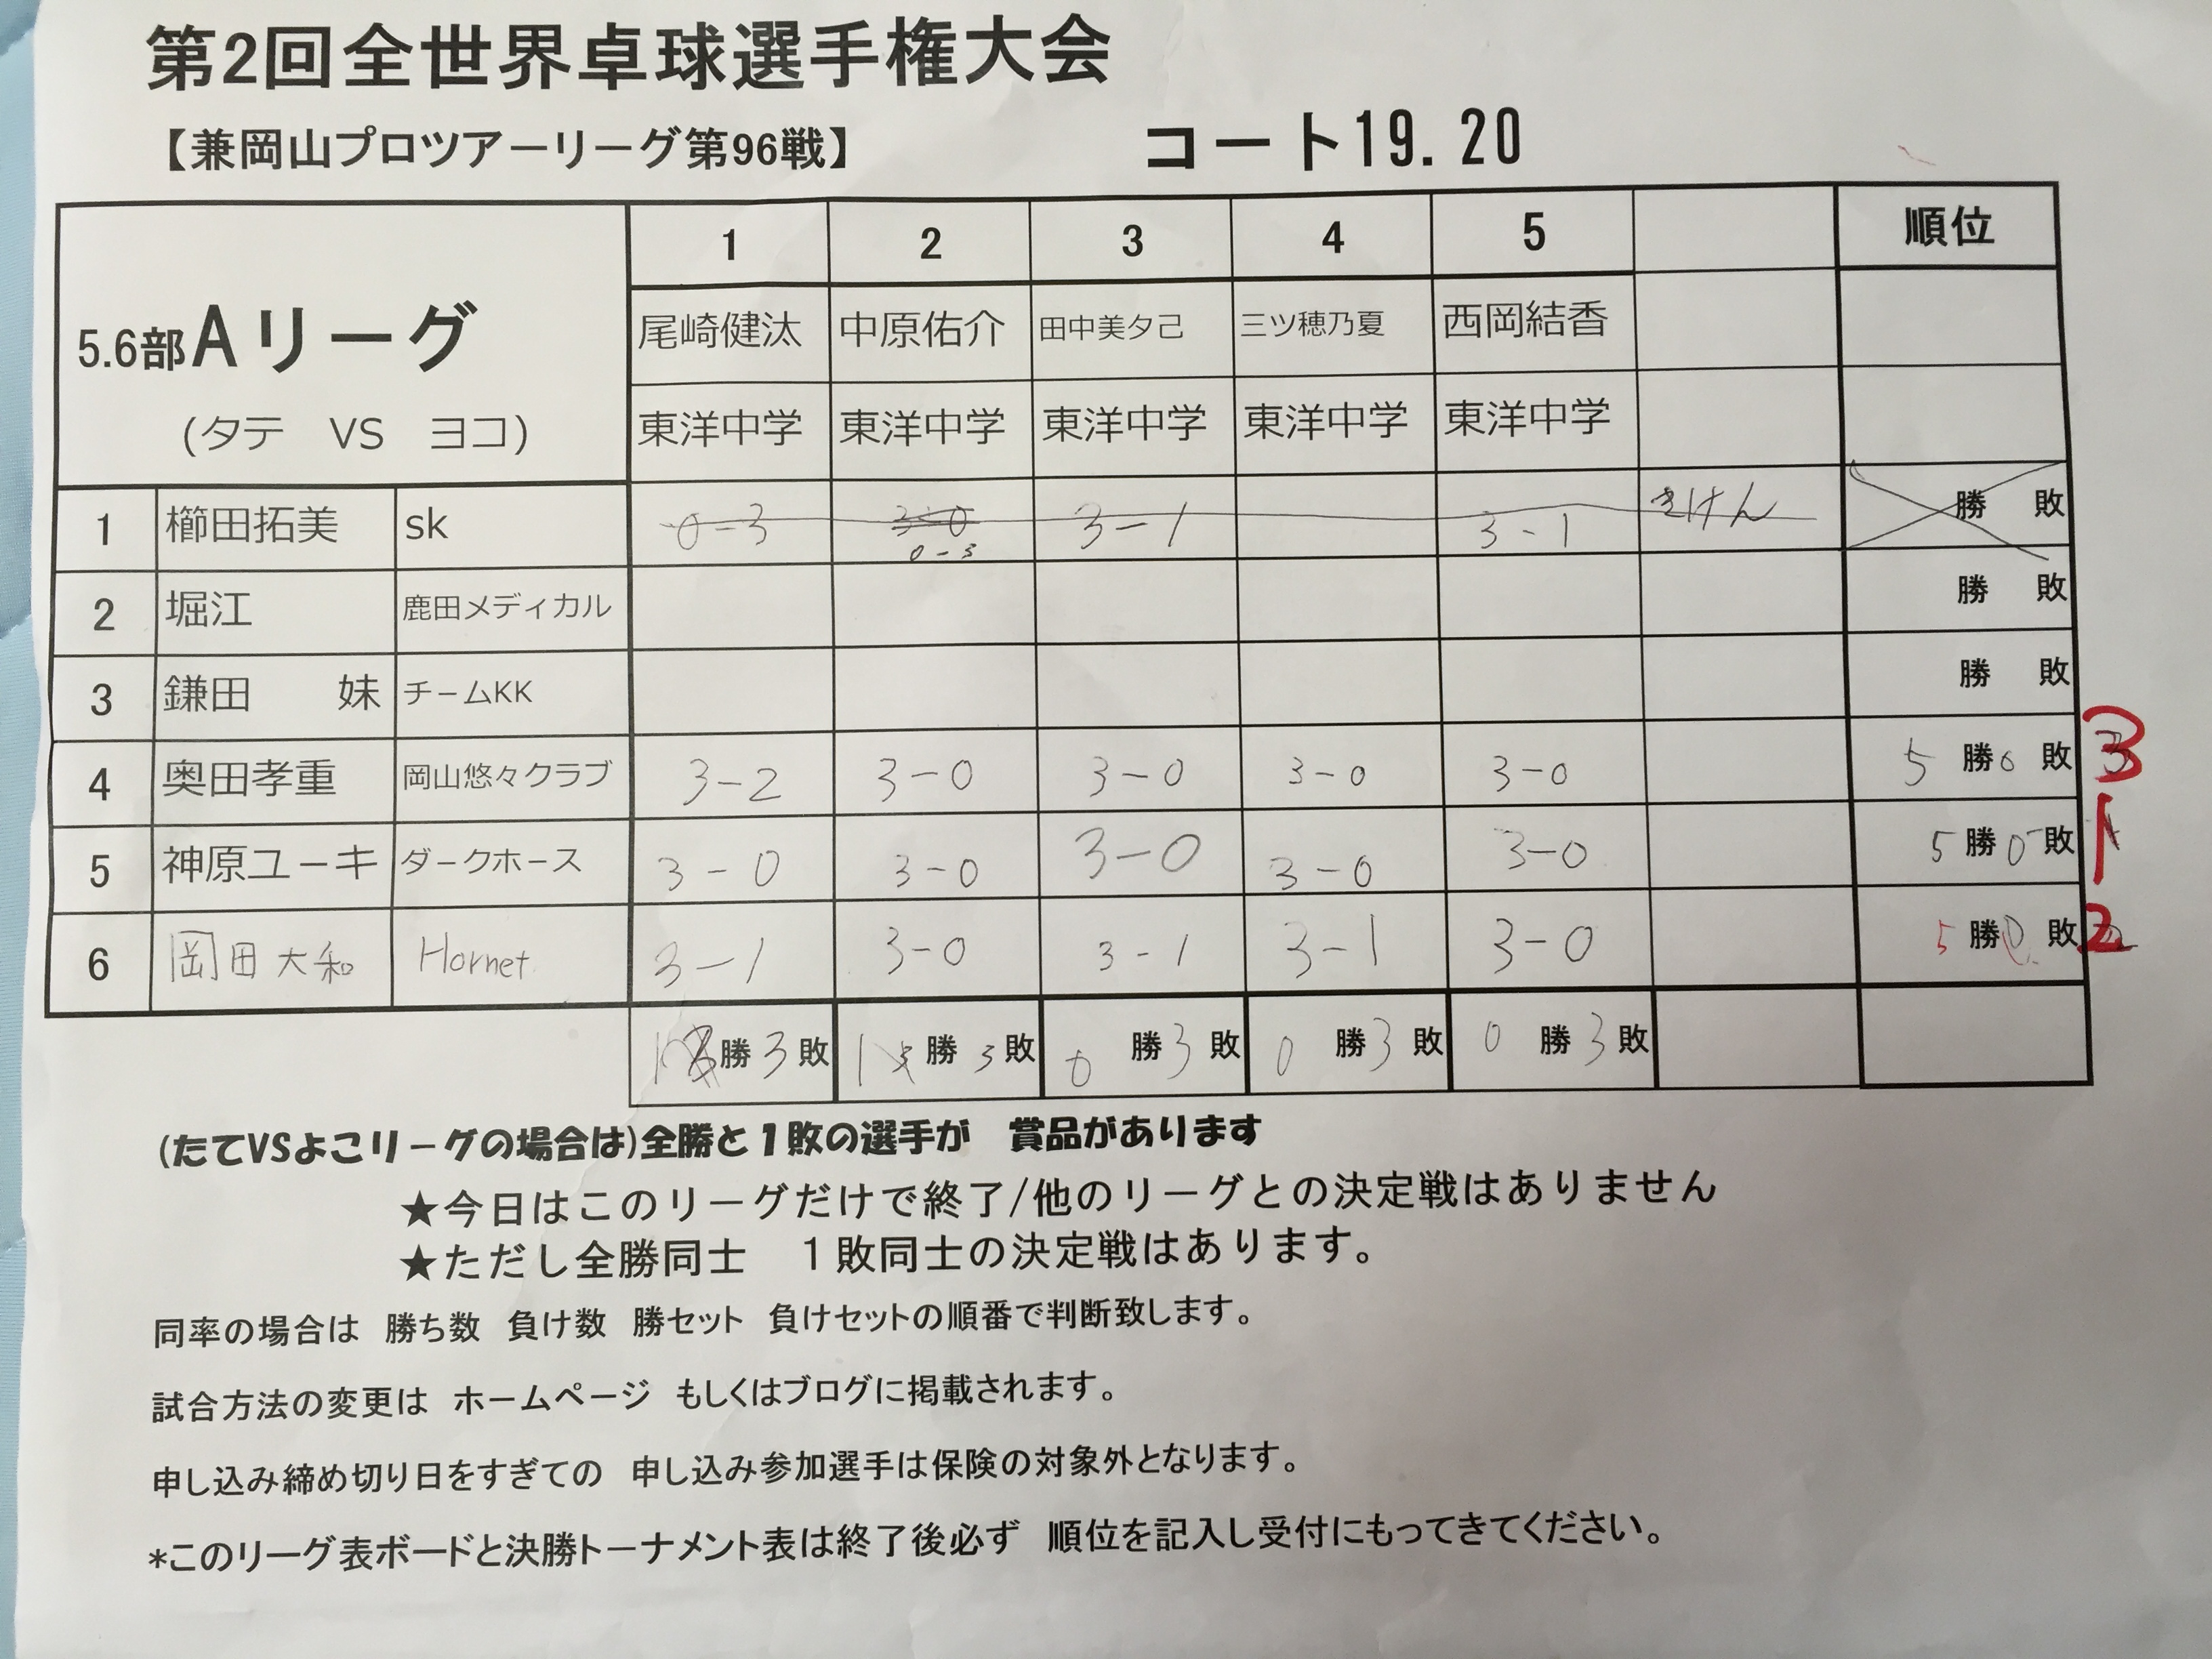 第2回全世界卓球選手権大会
【兼岡山プロツアーリーグ第96戦】 コート19.20
5.6部Aリーグ
(タテ VS ヨコ)
1 2 3 4 5 順位
尾崎健汰 中原佑介 田中美夕己 三ツ穂乃夏 西岡結香
東洋中学 東洋中学 東洋中学 東洋中学 東洋中学
1 櫛田拓美 sk 0-3 3-0 0-3 3-1 3-1 きけん 勝 敗
2 堀江 鹿田メディカル 勝 敗
3 鎌田 妹 チームKK 勝 敗
4 奥田孝重 岡山悠々クラブ 3-2 3-0 3-0 3-0 3-0 5 勝 0 敗 3
5 神原ユーキ ダークホース 3-0 3-0 3-0 3-0 3-0 5 勝 0 敗 1
6 岡田大和 Hornet 3-1 3-0 3-1 3-1 3-0 5 勝 0 敗 2
1 勝 3 敗 1 勝 3 敗 0 勝 3 敗 0 勝 3 敗 0 勝 3 敗
(たてVSよこリーグの場合は)全勝と1敗の選手が 賞品があります
★今日はこのリーグだけで終了/他のリーグとの決定戦はありません
★ただし全勝同士 1敗同士の決定戦はあります。
同率の場合は 勝ち数 負け数 勝セット 負けセットの順番で判断致します。
試合方法の変更は ホームページ もしくはブログに掲載されます。
申し込み締め切り日をすぎての 申し込み参加選手は保険の対象外となります。
*このリーグ表ボードと決勝トーナメント表は終了後必ず 順位を記入し受付にもってきてください。